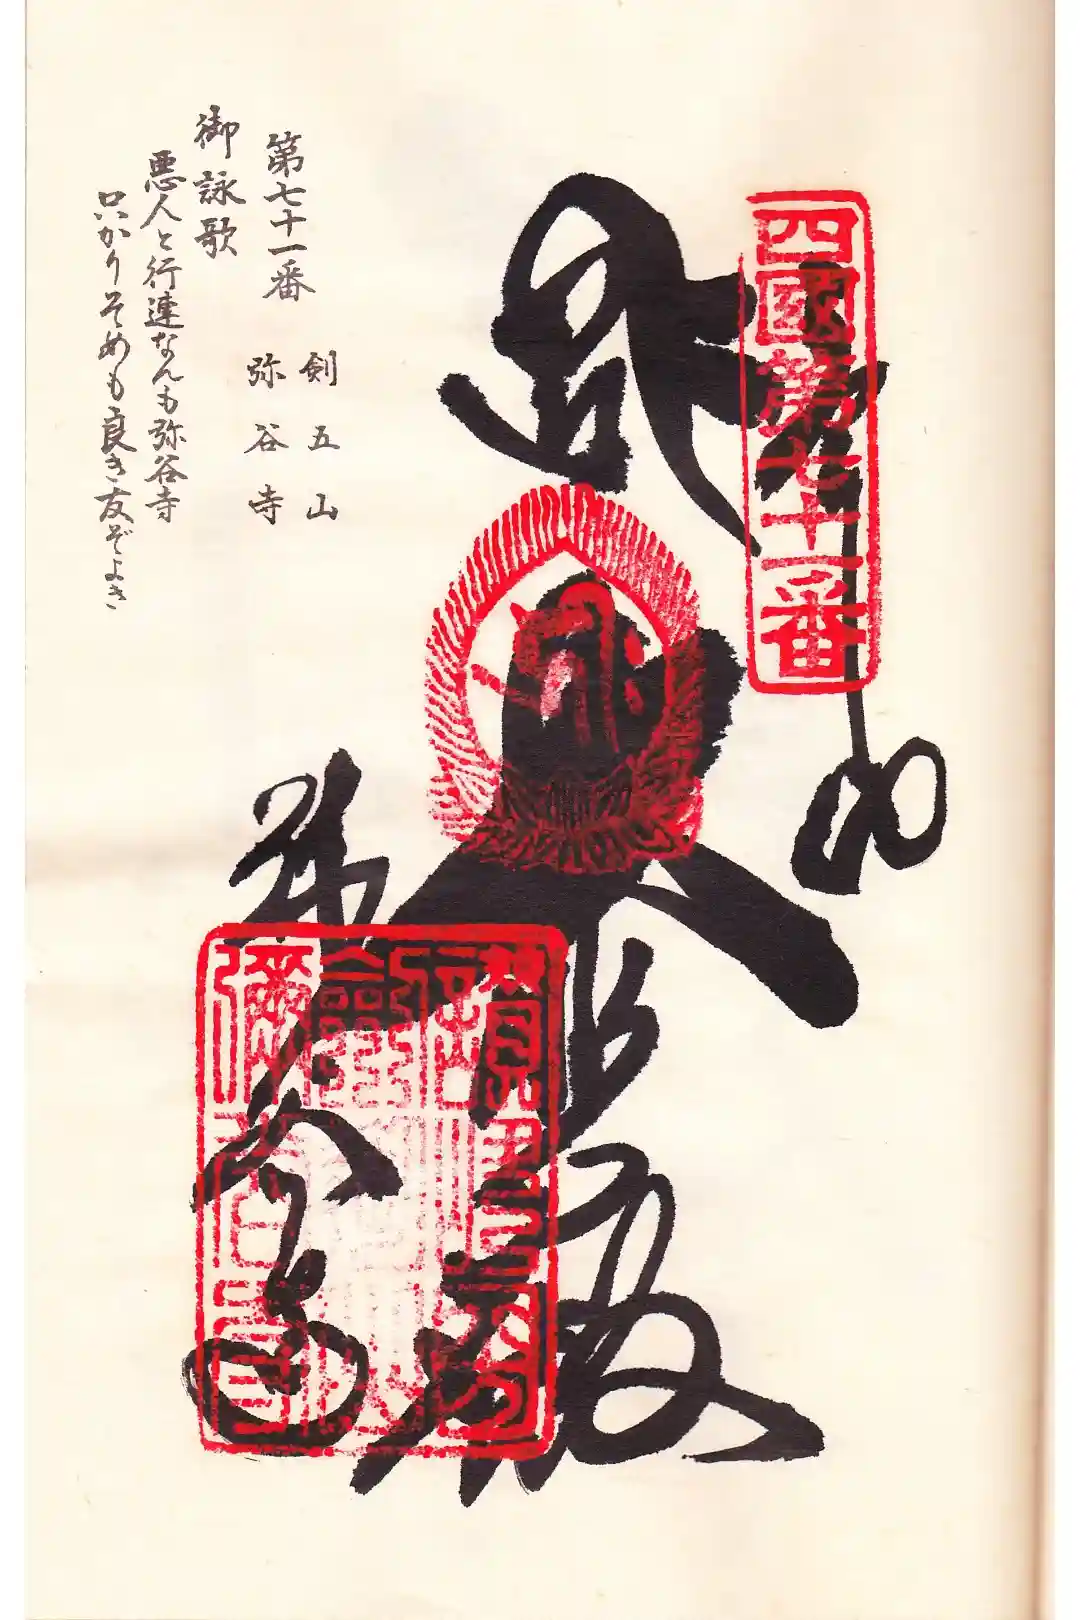 四國第七十一番
奉納
大悲殿
弥谷寺
第七十一番
剣五山
弥谷寺
御詠歌
悪人と行連なんも弥谷寺
只かりそめも良き友ぞよき